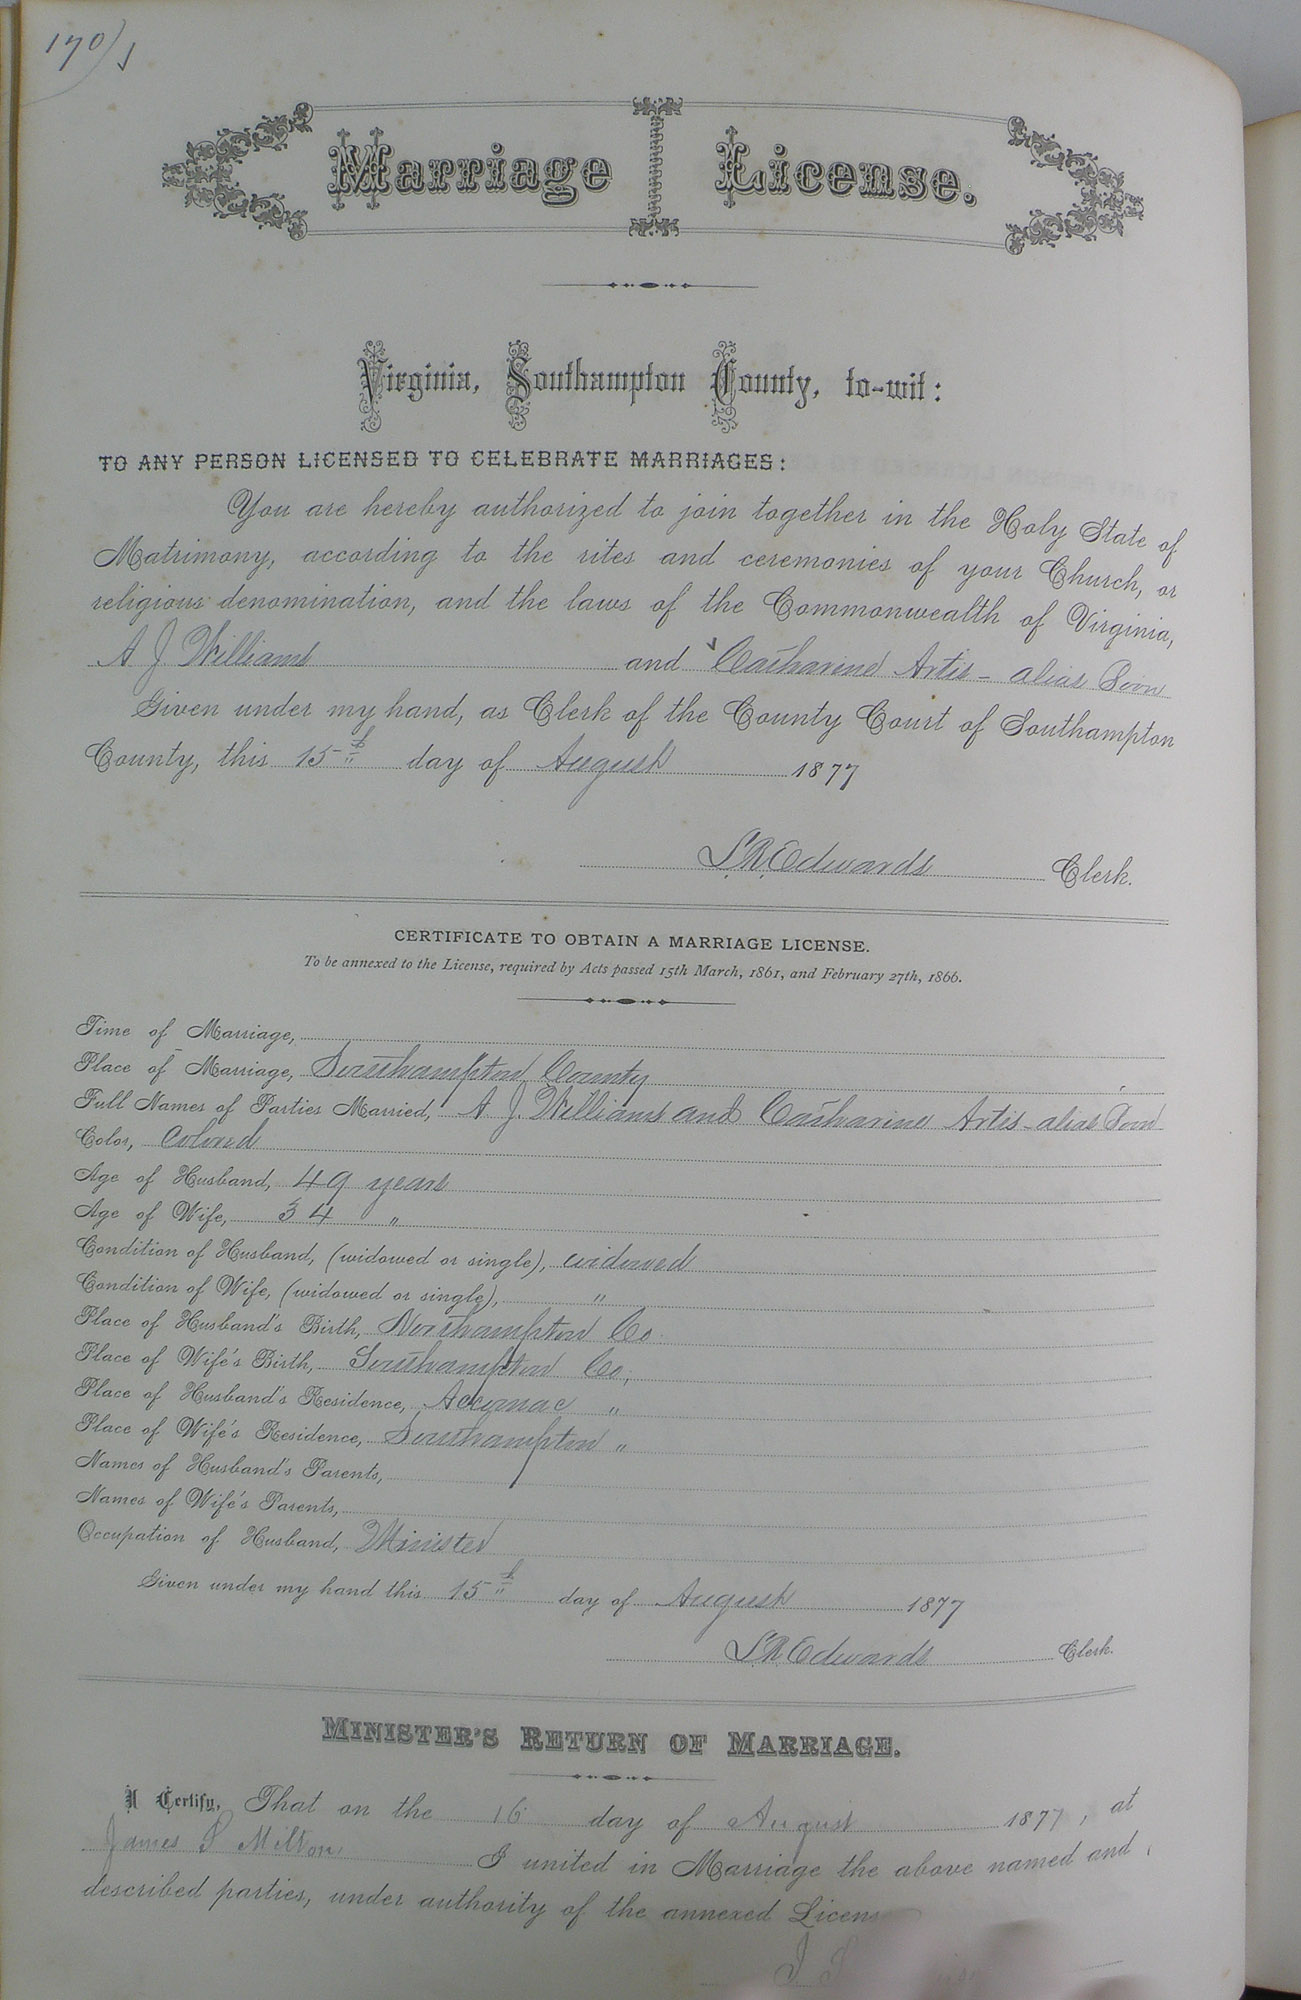 170)
Marriage License.
Virginia, Southampton County, to-wit:
TO ANY PERSON LICENSED TO CELEBRATE MARRIAGES:
You are hereby authorized to join together in the Holy State of
Matrimony, according to the rites and ceremonies of your Church, or
religious denomination, and the laws of the Commonwealth of Virginia,
A J Williams and Catharine Artis - alias
Given under my hand, as Clerk of the County Court of Southampton
County, this 15th day of August 1877
L.R. Edwards Clerk.
CERTIFICATE TO OBTAIN A MARRIAGE LICENSE.
To be annexed to the License, required by Acts passed 15th March, 1861, and February 27th, 1866.
Time of Marriage,
Place of Marriage, Southampton County
Full Names of Parties Married, A. J. Williams and Catharine Artis - alias
Color, Colored
Age of Husband, 49 years
Age of Wife, 34 "
Condition of Husband, (widowed or single), widowed
Condition of Wife, (widowed or single), "
Place of Husband's Birth, Northampton Co.
Place of Wife's Birth, Southampton Co,
Place of Husband's Residence, Accomac "
Place of Wife's Residence, Southampton "
Names of Husband's Parents,
Names of Wife's Parents,
Occupation of Husband, Minister
Given under my hand this 15th day of August 1877
L.R. Edwards Clerk.
MINISTER'S RETURN OF MARRIAGE.
I Certify, That on the 16 day of August 1877, at
James S Milton I united in Marriage the above named and
described parties, under authority of the annexed Licens